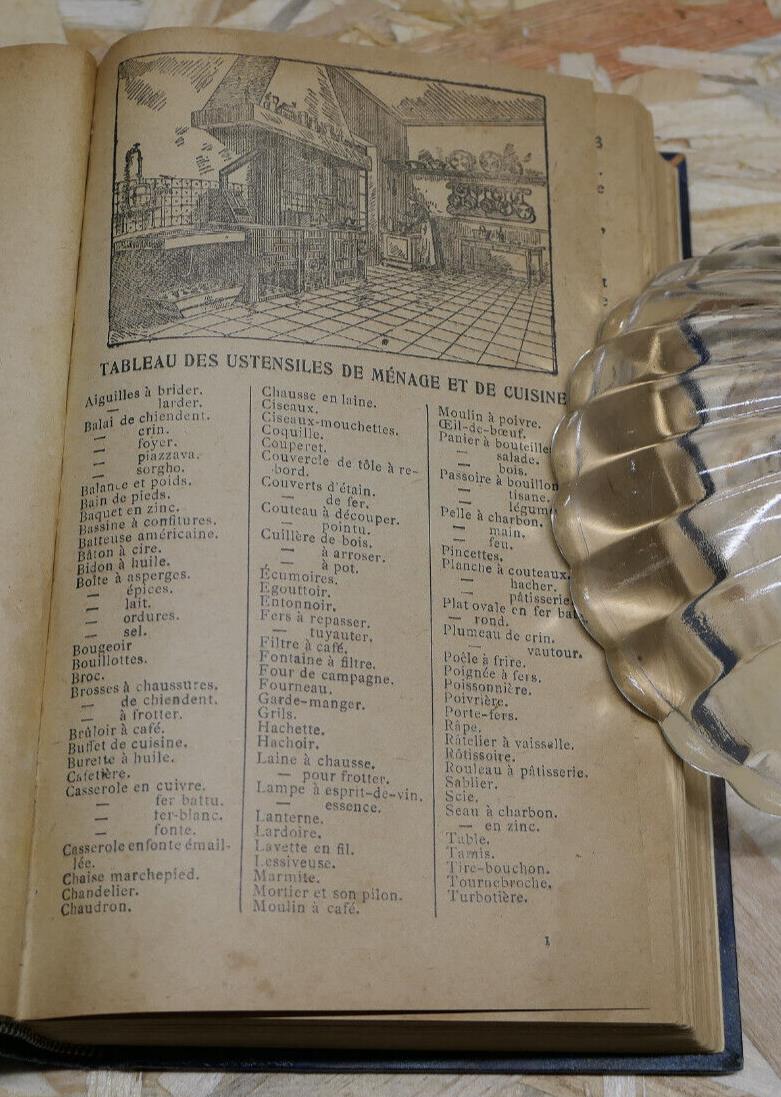 TABLEAU DES USTENSILES DE MÉNAGE ET DE CUISINE
Aiguilles à brider.
— larder.
Balai de chiendent.
— crin.
— foyer.
— piazzava.
— sorgho.
Balance et poids.
Bain de pieds.
Baquet en zinc.
Bassine à confitures.
Batteuse américaine.
Bâton à cire.
Bidon à huile.
Boîte à asperges.
— épices.
— lait.
— ordures.
— sel.
Bougeoir
Bouillottes.
Broc.
Brosses à chaussures.
— de chiendent.
— à frotter.
Brûloir à café.
Buffet de cuisine.
Burette à huile.
Cafetière.
Casserole en cuivre.
— fer battu.
— fer-blanc.
— fonte.
Casserole en fonte émail-
lée.
Chaise marchepied.
Chandelier.
Chaudron.
Chausse en laine.
Ciseaux.
Ciseaux-mouchettes.
Coquille.
Couperet.
Couvercle de tôle à re-
bord.
Couverts d'étain.
— de fer.
Couteau à découper.
— pointu.
Cuillère de bois.
— à arroser.
— à pot.
Écumoires.
Égouttoir.
Entonnoir.
Fers à repasser.
— tuyauter.
Filtre à café.
Fontaine à filtre.
Four de campagne.
Fourneau.
Garde-manger.
Grils.
Hachette.
Hachoir.
Laine à chausse.
— pour frotter.
Lampe à esprit-de-vin.
— essence.
Lanterne.
Lardoire.
Lavette en fil.
Lessiveuse.
Marmite.
Mortier et son pilon.
Moulin à café.
Moulin à poivre.
Œil-de-bœuf.
Panier à bouteille
— salade.
— bois.
Passoire à bouillon
— tisane.
— légum
Pelle à charbon.
— main.
— feu.
Pincettes.
Planche à couteaux.
— hacher.
— pâtisserie
Plat ovale en fer bat
— rond.
Plumeau de crin.
— vautour.
Poêle à frire.
Poignée à fers.
Poissonnière.
Poivrière.
Porte-fers.
Râpe.
Râtelier à vaisselle.
Rôtissoire.
Rouleau à pâtisserie.
Sablier.
Scie.
Seau à charbon.
— en zinc.
Table.
Tamis.
Tire-bouchon.
Tournebroche.
Turbotière.
1